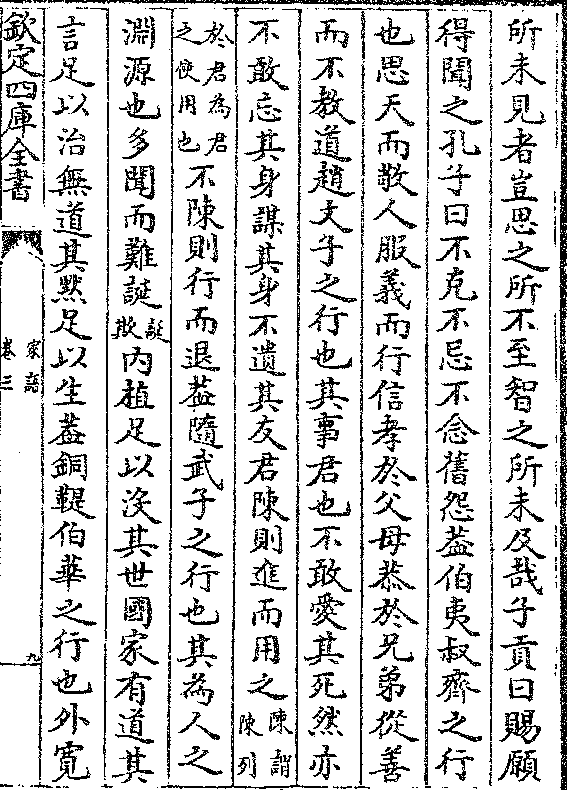 所未見者豈思之所不至智之所未及哉子貢曰賜願
得聞之孔子曰不克不忌不念舊怨葢伯夷叔齊之行
也思天而敬人服義而行信孝於父母恭於兄弟從善
而不教道趙文子之行也其事君也不敢愛其死然亦
不敢忘其身謀其身不遺其友君陳則進而用之陳謂陳列
於君為君之使用也不陳則行而退葢隨武子之行也其為人之
淵源也多聞而難誕誕欺內植足以沒其世國家有道其
言足以治無道其黙足以生葢銅鞮伯華之行也外寛
欽定四庫全書
家語
卷三
九